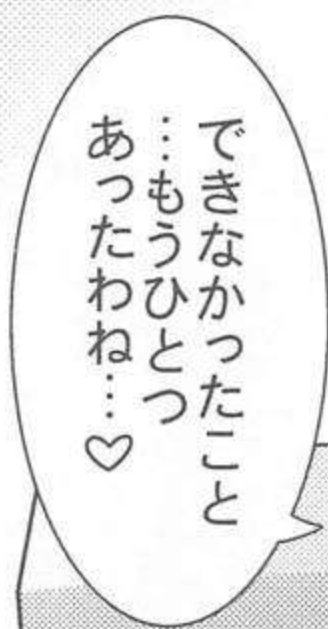 できなかったこと
…もうひとつ
あったわね…♡